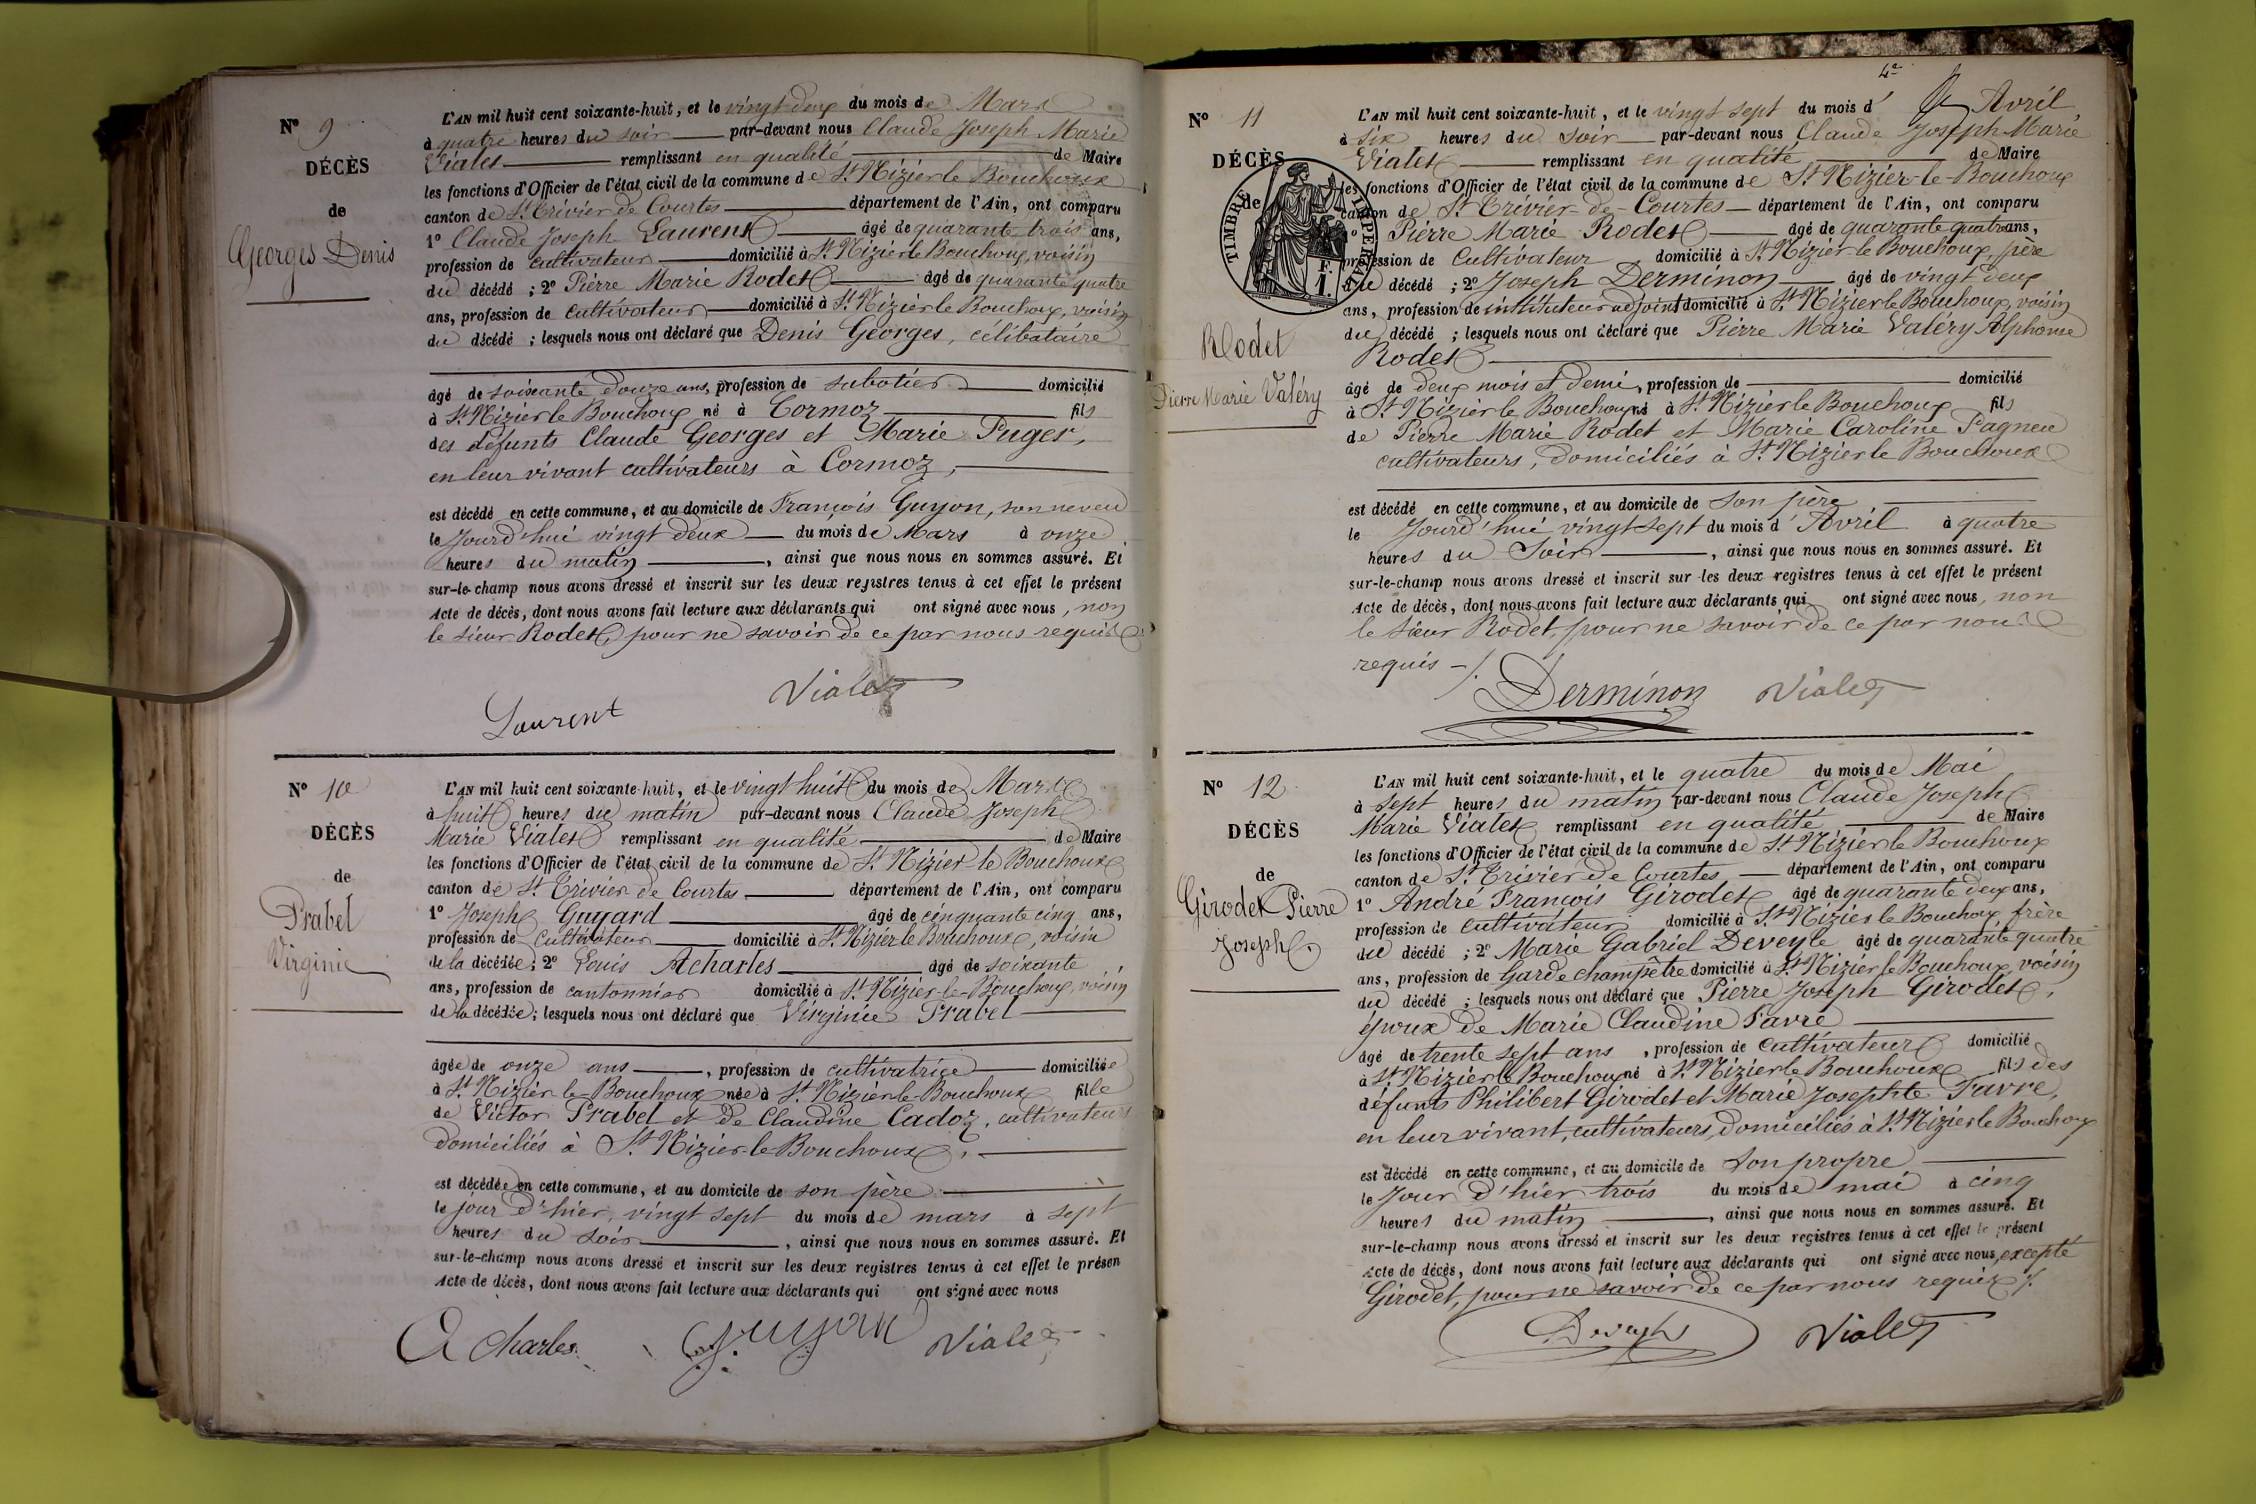 L'AN mil huit cent soixante-huit, et le vingt deux du mois de Mars
N° 9
à quatre heures du soir par-devant nous Claude Joseph Marie
Vialet remplissant en qualité de Maire
DÉCÈS
les fonctions d'Officier de l'état civil de la commune de St Nizier le Bouchoux
de
canton de St Trivier de Courtes département de l'Ain, ont comparu
1° Claude Joseph Laurent âgé de quarante trois ans,
Georges Denis
profession de cultivateur domicilié à St Nizier le Bouchoux, voisin
du décédé ; 2° Pierre Marie Rodet âgé de quarante quatre
ans, profession de cultivateur domicilié à St Nizier le Bouchoux, voisin
du décédé ; lesquels nous ont déclaré que Denis Georges, célibataire
âgé de soixante douze ans, profession de sabotier domicilié
à St Nizier le Bouchoux né à Cormoz fils
des défunts Claude Georges et Marie Puget,
en leur vivant cultivateurs à Cormoz,
est décédé en cette commune, et au domicile de François Guyon, son neveu
le Jourd'hui vingt deux du mois de Mars à onze
heures du matin, ainsi que nous nous en sommes assuré. Et
sur-le-champ nous avons dressé et inscrit sur les deux registres tenus à cet effet le présent
Acte de décès, dont nous avons fait lecture aux déclarants qui ont signé avec nous, non
le sieur Rodet, pour ne savoir de ce par nous requis
Laurent Vialet
N° 10
L'AN mil huit cent soixante-huit, et le vingt huit du mois de Mars
à huit heures du matin par-devant nous Claude Joseph
DÉCÈS
Marie Vialet remplissant en qualité de Maire
les fonctions d'Officier de l'état civil de la commune de St Nizier le Bouchoux
de
canton de St Trivier de Courtes département de l'Ain, ont comparu
Prabel
1° Joseph Guyard âgé de cinquante cinq ans,
profession de Cultivateur domicilié à St Nizier le Bouchoux, voisin
Virginie
de la décédée ; 2° Louis Acharles âgé de soixante
ans, profession de cantonnier domicilié à St Nizier-le-Bouchoux, voisin
de la décédée ; lesquels nous ont déclaré que Virginie Prabel
âgée de onze ans, profession de cultivatrice domiciliée
à St Nizier le Bouchoux née à St Nizier le Bouchoux fille
de Victor Prabel et de Claudine Cadoz, cultivateurs
domiciliés à St Nizier-le-Bouchoux,
est décédée en cette commune, et au domicile de son père
le jour d'hier, vingt sept du mois de mars à sept
heures du soir, ainsi que nous nous en sommes assuré. Et
sur-le-champ nous avons dressé et inscrit sur les deux registres tenus à cet effet le présen
Acte de décès, dont nous avons fait lecture aux déclarants qui ont signé avec nous
A charles Vialet
4e
N° 11
L'AN mil huit cent soixante-huit, et le vingt sept du mois d' Avril
à six heures du soir par-devant nous Claude Joseph Marie
DÉCÈS
Vialet remplissant en qualité de Maire
les fonctions d'Officier de l'état civil de la commune de St Nizier-le-Bouchoux
de
canton de St Trivier-de-Courtes département de l'Ain, ont comparu
TIMBRE IMPERIAL
F.
1.
1° Pierre Marie Rodet âgé de quarante quatre ans,
profession de Cultivateur domicilié à St Nizier-le-Bouchoux, père
du décédé ; 2° Joseph Derminon âgé de vingt deux
ans, profession de instituteur adjoint domicilié à St Nizier le Bouchoux, voisin
du décédé ; lesquels nous ont déclaré que Pierre Marie Valéry Alphonse
Rodet
Rodet
Pierre Marie Valéry
âgé de deux mois et demi, profession de domicilié
à St Nizier le Bouchoux né à St Nizier le Bouchoux fils
de Pierre Marie Rodet et Marie Caroline Pagneu
cultivateurs, domiciliés à St Nizier le Bouchoux
est décédé en cette commune, et au domicile de son père
le Jourd'hui vingt sept du mois d' Avril à quatre
heures du Soir, ainsi que nous nous en sommes assuré. Et
sur-le-champ nous avons dressé et inscrit sur les deux registres tenus à cet effet le présent
Acte de décès, dont nous avons fait lecture aux déclarants qui ont signé avec nous, non
le Sieur Rodet, pour ne savoir de ce par nous
requis
Derminon Vialet
N° 12
L'AN mil huit cent soixante-huit, et le quatre du mois de Mai
à sept heures du matin par-devant nous Claude Joseph
DÉCÈS
Marie Vialet remplissant en qualité de Maire
les fonctions d'Officier de l'état civil de la commune de St Nizier le Bouchoux
de
canton de St Trivier de Courtes département de l'Ain, ont comparu
Girodet Pierre
Joseph
1° André François Girodet âgé de quarante deux ans,
profession de cultivateur domicilié à St Nizier le Bouchoux, frère
du décédé ; 2° Marie Gabriel Deveyle âgé de quarante quatre
ans, profession de garde champêtre domicilié à St Nizier le Bouchoux, voisin
du décédé ; lesquels nous ont déclaré que Pierre Joseph Girodet,
époux de Marie Claudine Favre
âgé de trente sept ans, profession de cultivateur domicilié
à St Nizier le Bouchoux né à St Nizier le Bouchoux fils des
défunts Philibert Girodet et Marie Josephte Favre,
en leur vivant, cultivateurs, domiciliés à St Nizier le Bouchoux
est décédé en cette commune, et au domicile de son propre
le Jour d'hier trois du mois de mai à cinq
heures du matin, ainsi que nous nous en sommes assuré. Et
sur-le-champ nous avons dressé et inscrit sur les deux registres tenus à cet effet le présent
Acte de décès, dont nous avons fait lecture aux déclarants qui ont signé avec nous, excepté
Girodet, pour ne savoir de ce par nous requiz
Deveyle Vialet